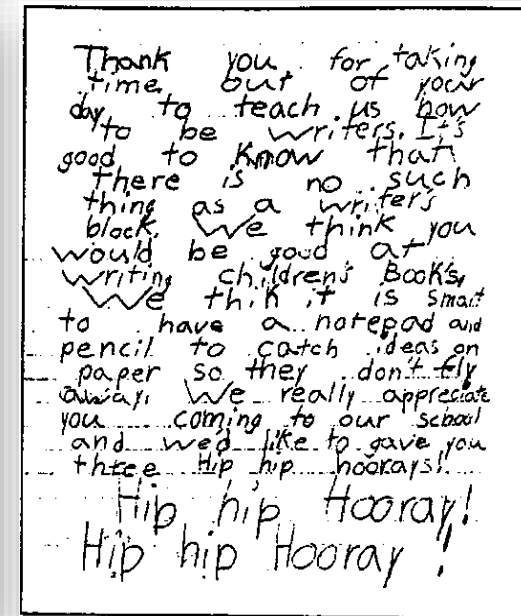 Thank you for taking
time out of your
day to teach us how
to be writers. It's
good to know that
there is no such
thing as a writer's
block. We think you
would be good at
writing children's Books.
We thik it is smart
to have a notepad and
pencil to catch ideas on
paper so they don't fly
away. We really appreciate
you coming to our school
and we'd like to gave you
three Hip hip hoorays!
Hip hip Hooray!
Hip hip Hooray!